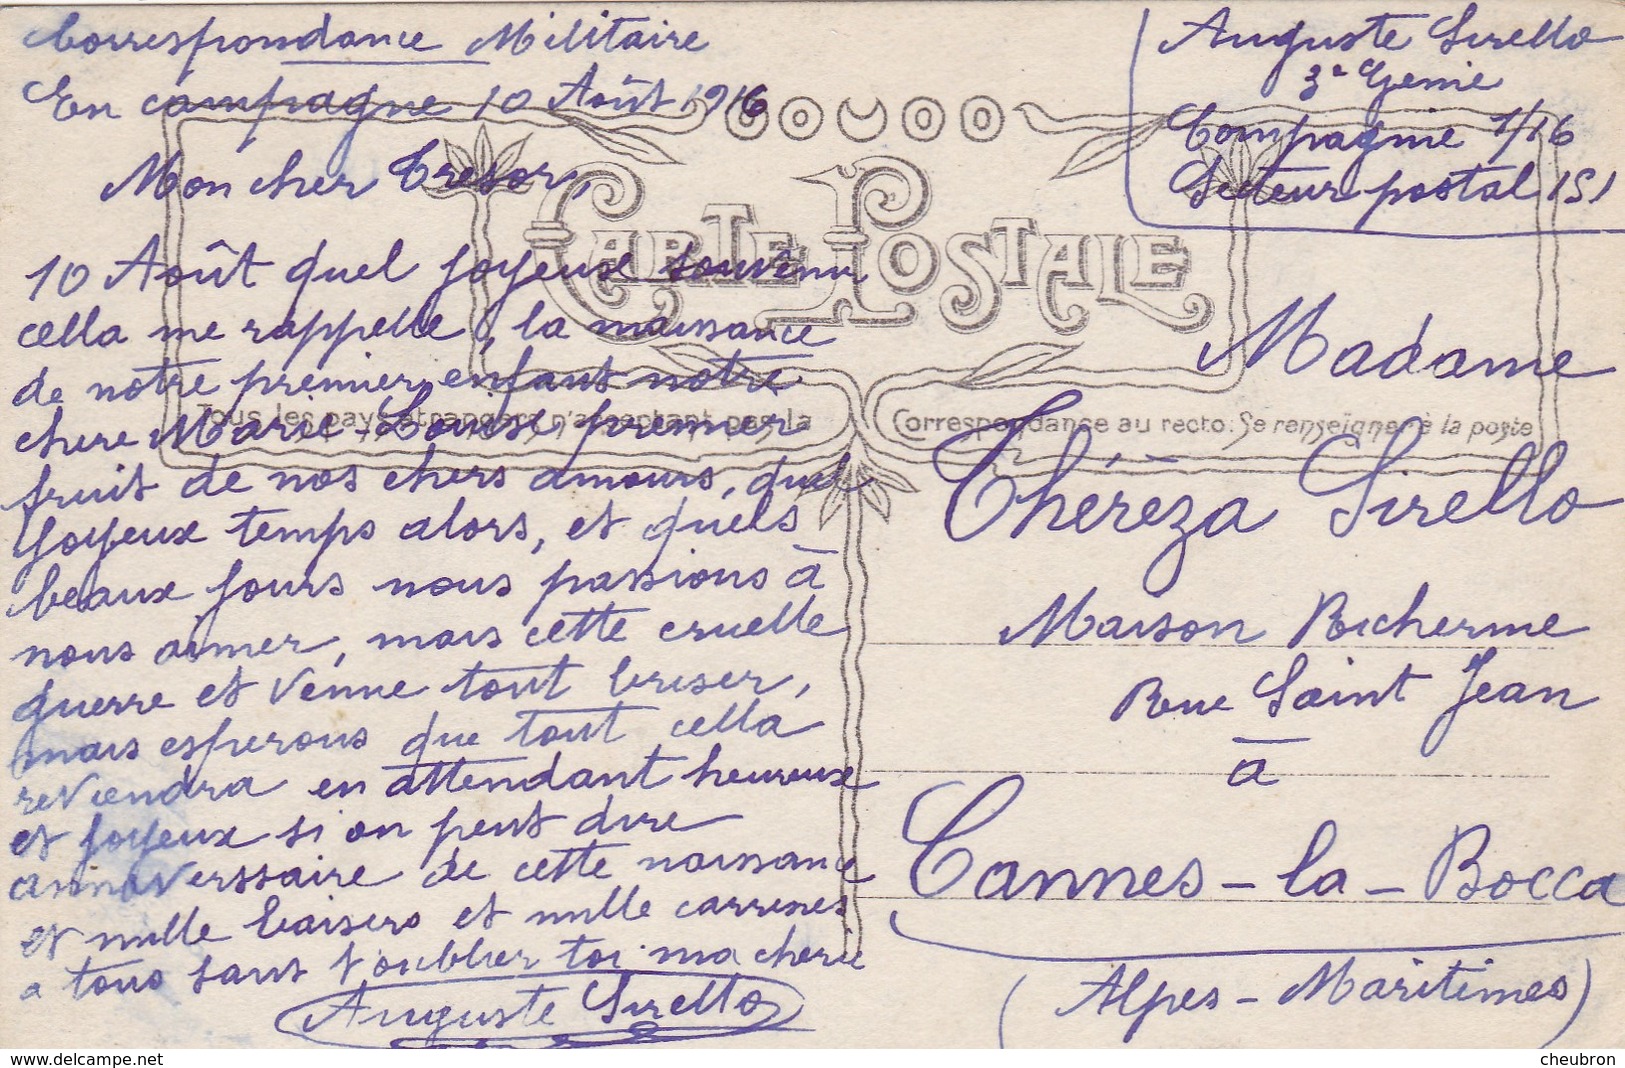 Correspondance Militaire
En campagne 10 Août 1916
Mon cher Tresor,
10 Août quel joyeuse souvenir
cella me rappelle, la naissance
de notre premier enfant notre
chere Marie-Louise premier
fruit de nos chers amours, quel
joyeux temps alors, et quels
beaux jours nous passions à
nous aimer, mais cette cruelle
guerre et venue tout briser,
mais esperons que tout cella
reviendra en attendant heureux
et joyeux si on peut dire
anniverssaire de cette naissance
et mille baisers et mille carresses
a tous sant t'oublier toi ma cherie
Auguste Sirello
Auguste Sirello
3e Genie
Compagnie 1/16
Secteur postal 151
CARTE POSTALE
Tous les pays étrangers n'acceptant pas la
Correspondance au recto: Se renseigner à la poste
Madame
Théreza Sirello
Maison Richerme
Rue Saint Jean
à
Cannes-la-Bocca
(Alpes-Maritimes)
www.delcampe.net
cheubron